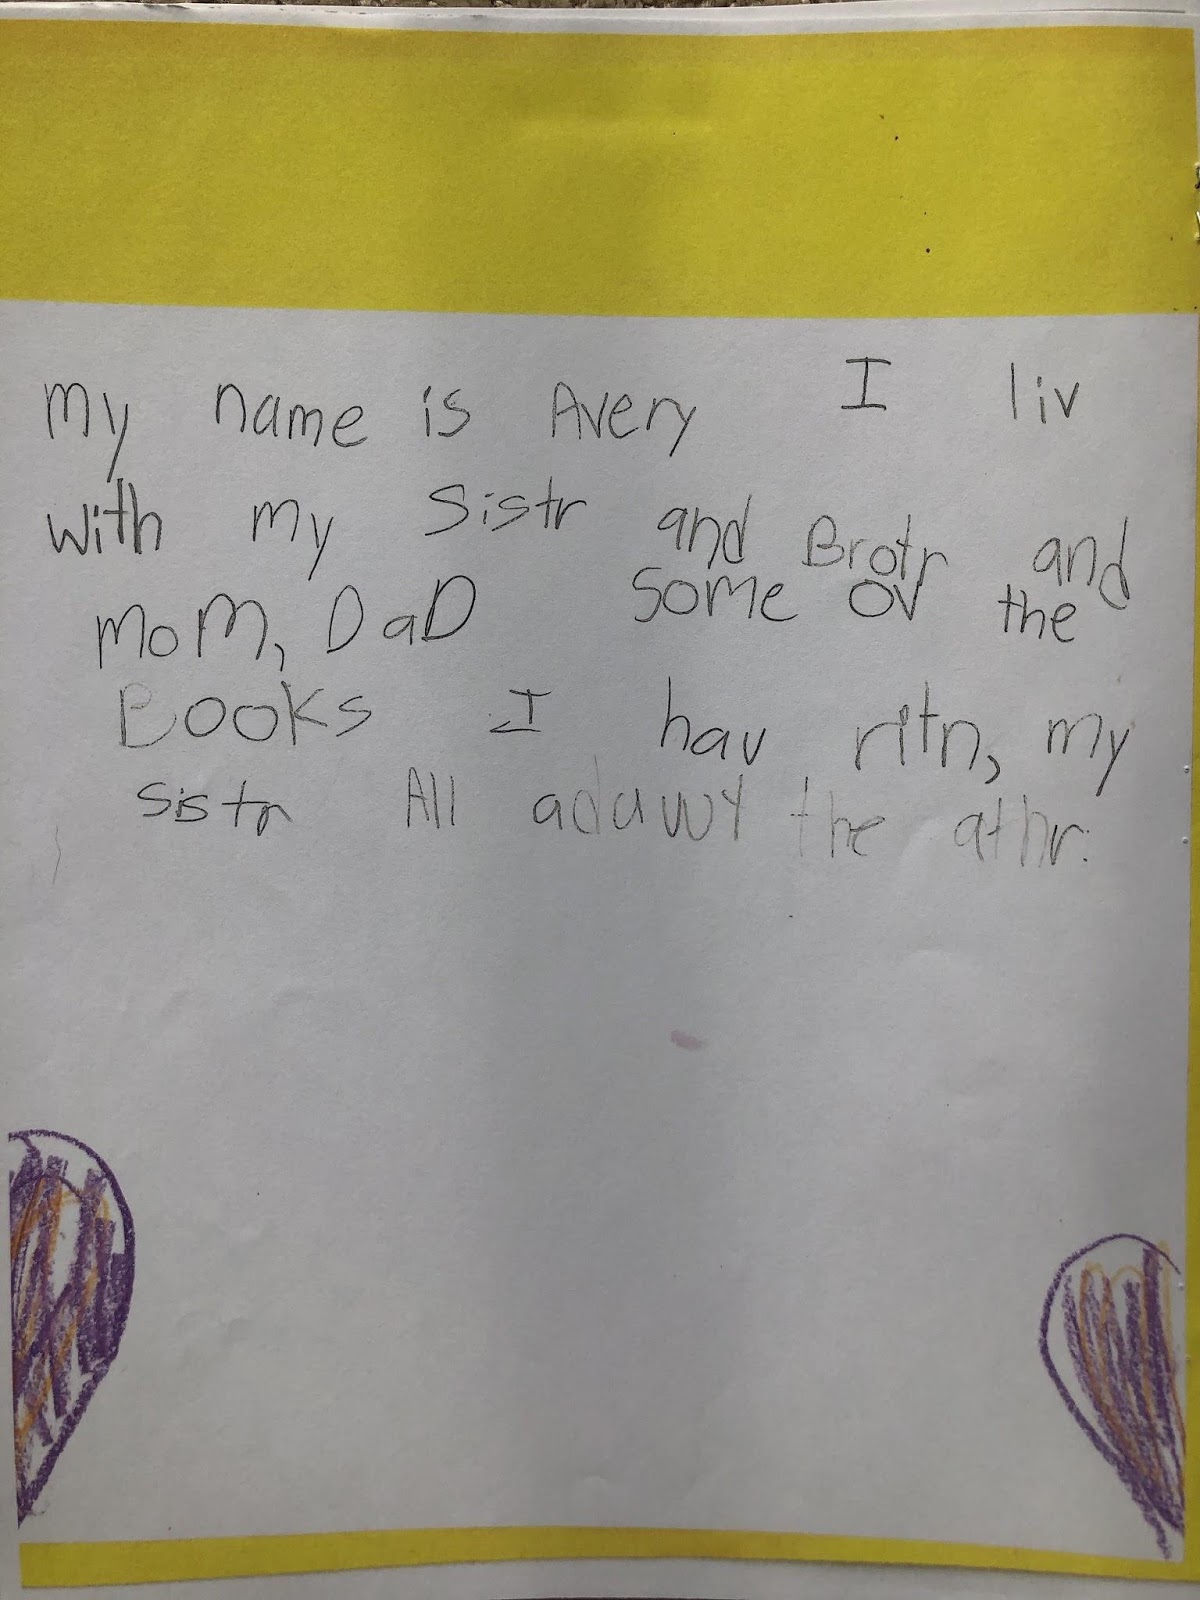 my name is Avery I liv
with my Sistr and Brotr and
MoM, DaD Some ov the
Books I hav ritn, my
sistr All adauwt the athr.